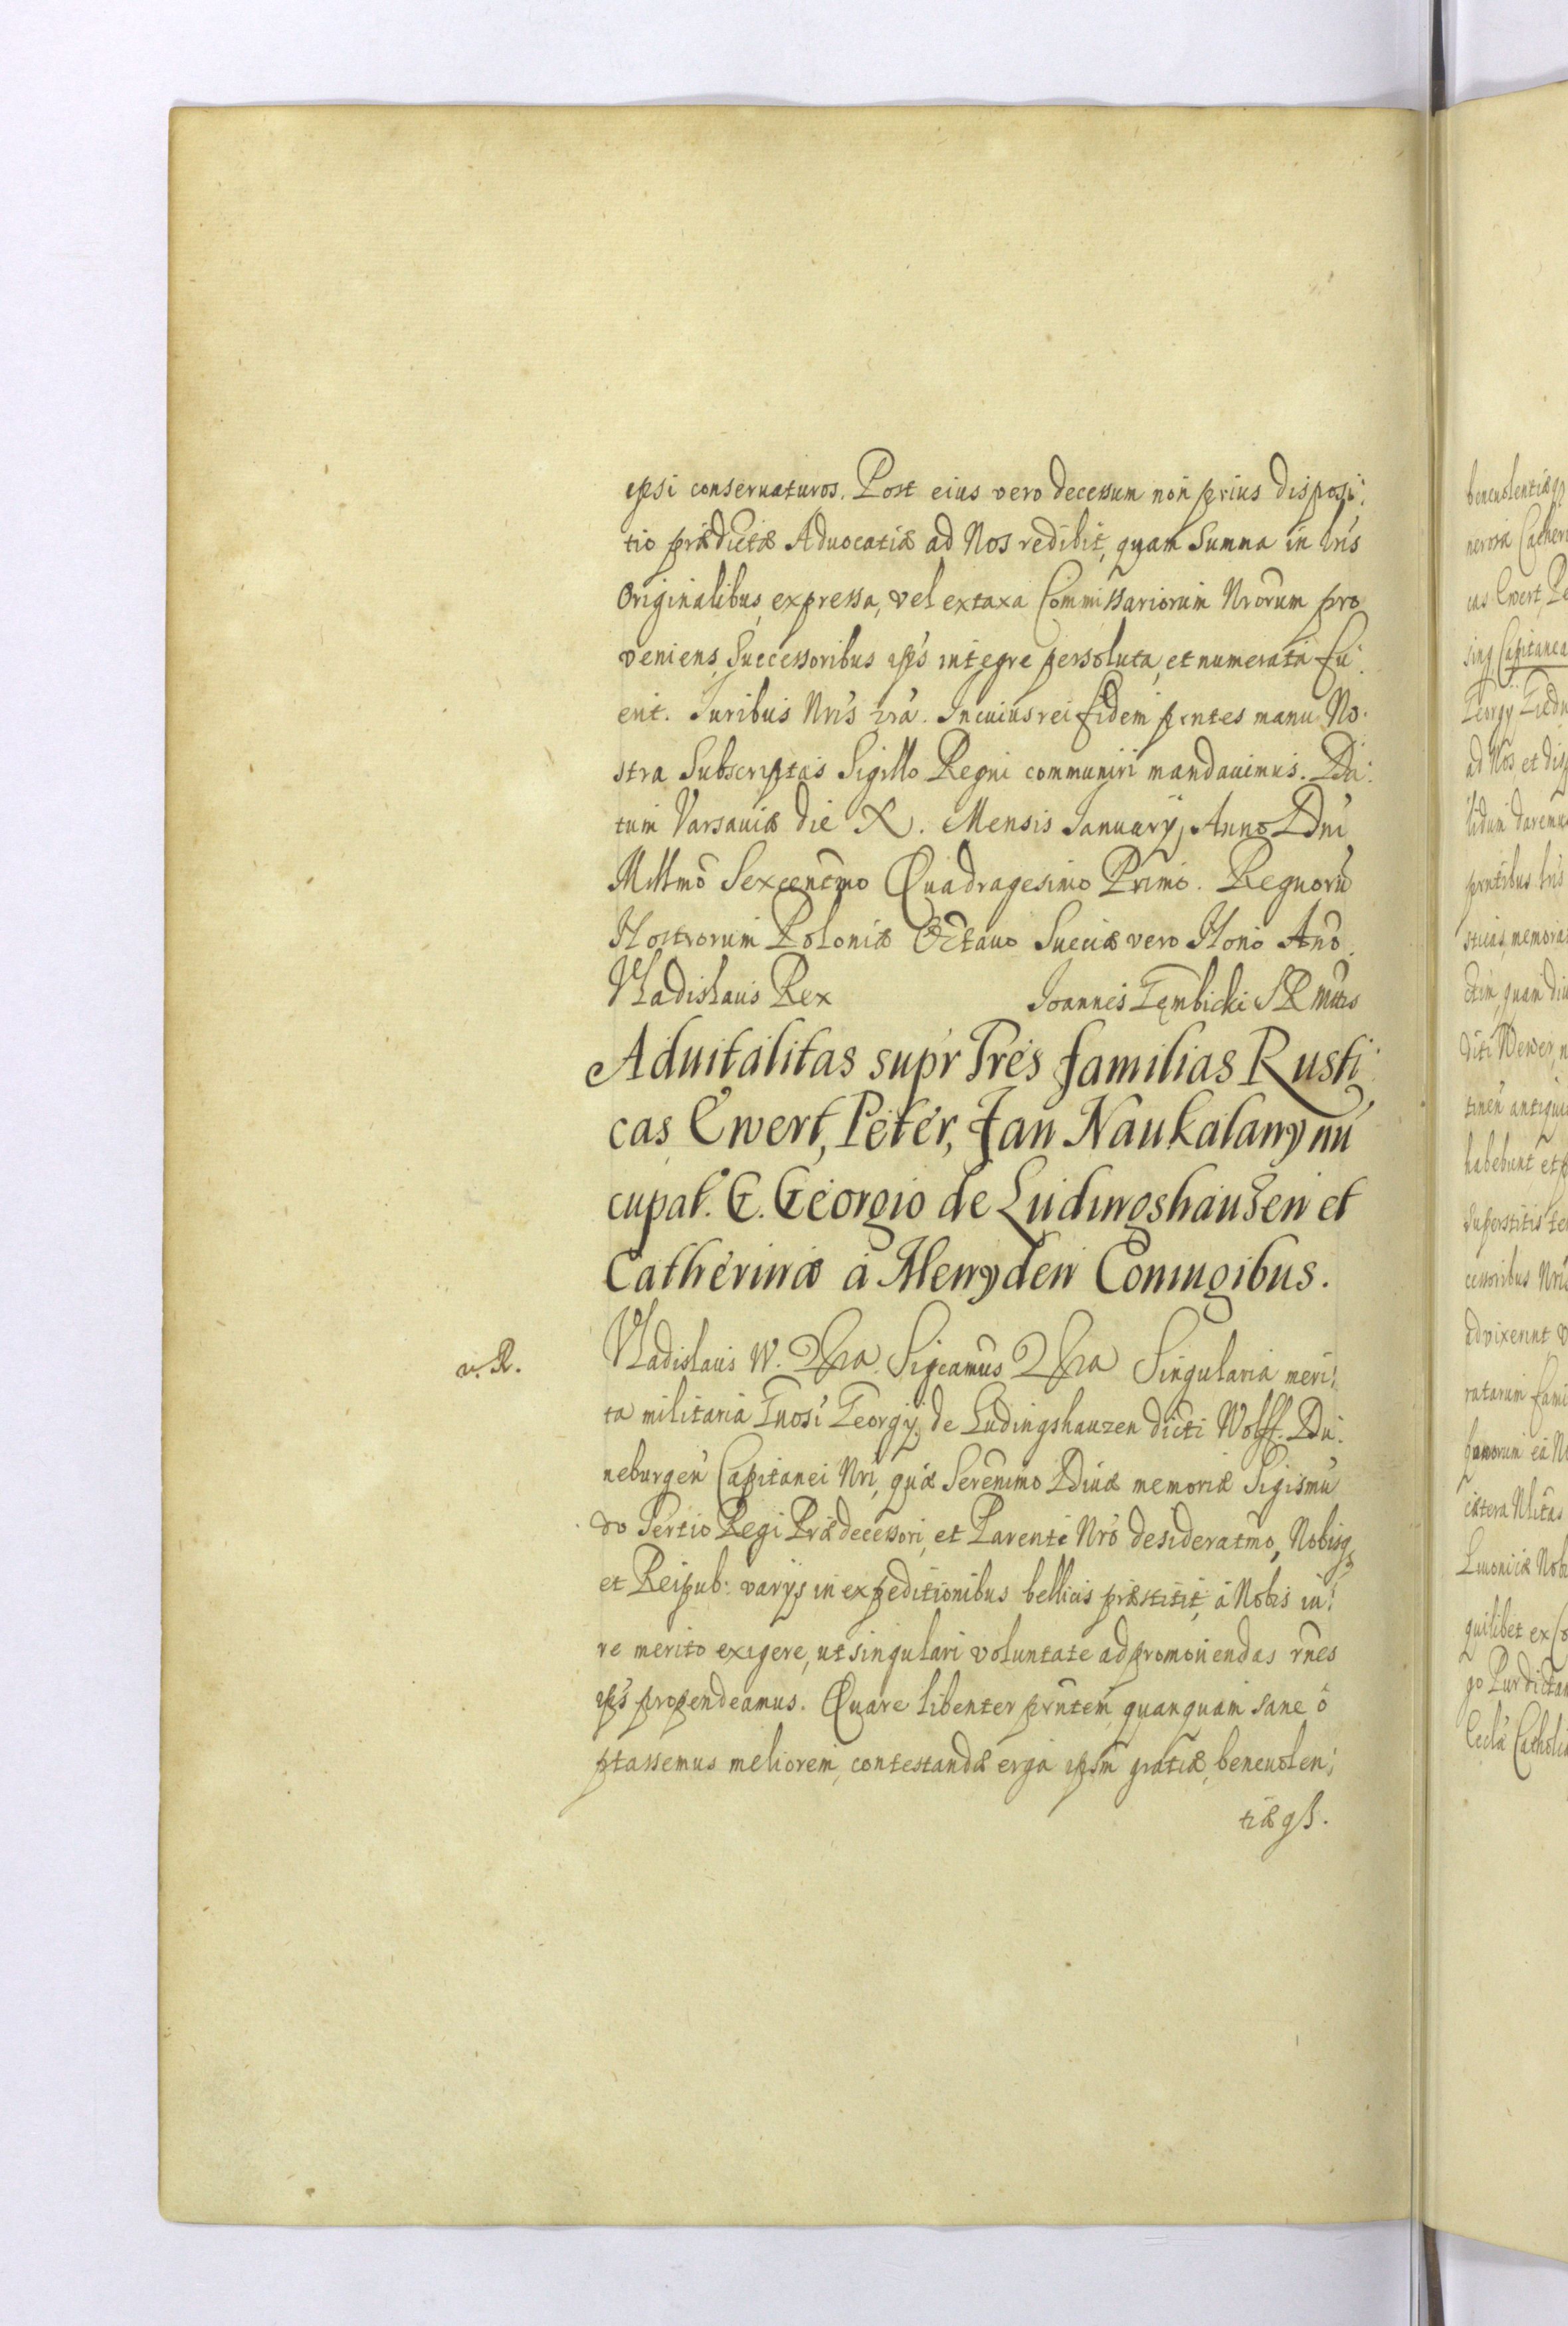 ipsi conseruaturos. Post eius vero decessum non prius disposi:
tio prædictæ Aduocatiæ ad Nos redibit, quam Summa in Lris
Originalibus expressa, vel ex taxa Commissariorum Nrorum pro
veniens, Successoribus ips integre persoluta, et numerata fu:
erit. Juribus Nris zra. In cuius rei fidem pntes manu No:
stra Subscriptas Sigillo Regni communiri mandauimus. Da:
tum Varsauiæ die X. Mensis January, Anno Dni
Millmo Sexcentmo Quadragesimo Primo. Regnorū
Nostrorum Poloniæ Octauo Sueciæ vero Nono Anō.
Vladislaus Rex Joannes Gembicki SR Mtis
Aduitalitas supr Tres familias Rusti:
cas Ewert, Peter, Jan Naukalany nū
cupat. G. Georgio de Ludingshausen et
Catherinæ a Meyden Coniugibus.
v. R. Vladislaus IV. Dgra. Sigcamus Dgra Singularia meri:
ta militaria Gnosi Georgij de Ludingshauzen dicti Wolff. Du:
neburgen Capitanei Nri, quæ Serenimo Diuæ memoriæ Sigismū
do Tertio Regi Prædecessori, et Parenti Nro desideratmo, Nobisq3
et Reipub: varijs in expeditionibus bellicis præstitit, à Nobis iu:
re merito exigere, ut singulari voluntate ad promouendas rnes
ips propendeamus. Quare libenter prntem, quanquam sane o
ptassemus meliorem, contestandæ erga ipsm gratiæ, beneuolen:
tiæ qß.
beneuolentiæq3
nerosa Cather
cas Ewert, Pe
sing Capitanea
Georgij Lud
ad Nos et disp
lidum daremus
prntibus Lris
sticas, memora
diti Wewer, n
tinen antiquis
habebunt, et p
Superstitis te
cessoribus Nris
aduixerint v
ratarum fami
cætera Nlitas
Liuoniæ Nob
quilibet ex Co
go Pur dictam
Eccla Catholi